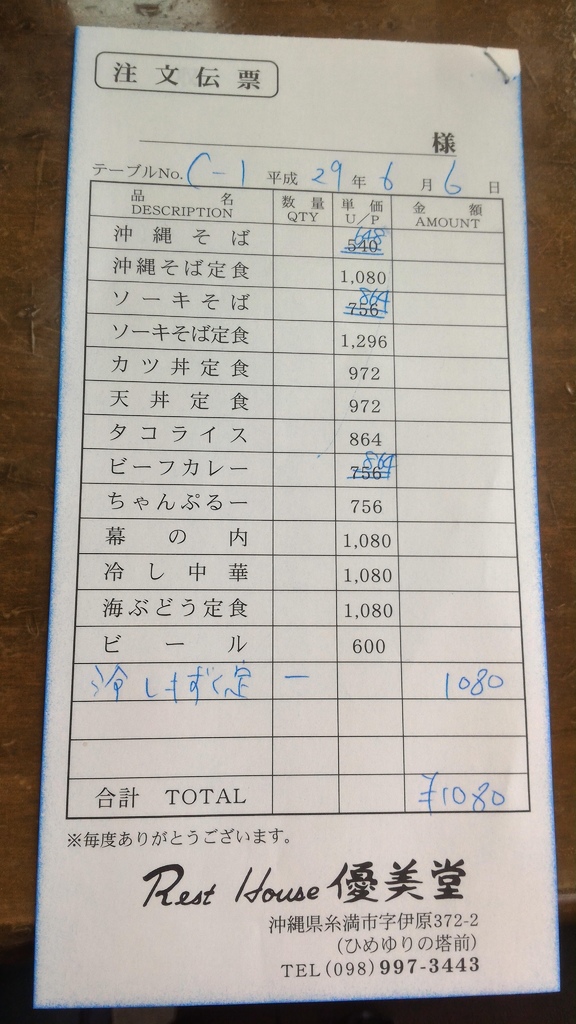 注文伝票
様
テーブルNo. C-1 平成 29 年 6 月 6 日
品名 数量 単価 金額
DESCRIPTION QTY U/P AMOUNT
沖縄そば 540 648
沖縄そば定食 1,080
ソーキそば 756 864
ソーキそば定食 1,296
カツ丼定食 972
天丼定食 972
タコライス 864
ビーフカレー 756 864
ちゃんぷるー 756
幕の内 1,080
冷し中華 1,080
海ぶどう定食 1,080
ビール 600
冷しもずく定 一 1080
合計 TOTAL ¥1080
※毎度ありがとうございます。
Rest House 優美堂
沖縄県糸満市字伊原372-2
(ひめゆりの塔前)
TEL(098)997-3443